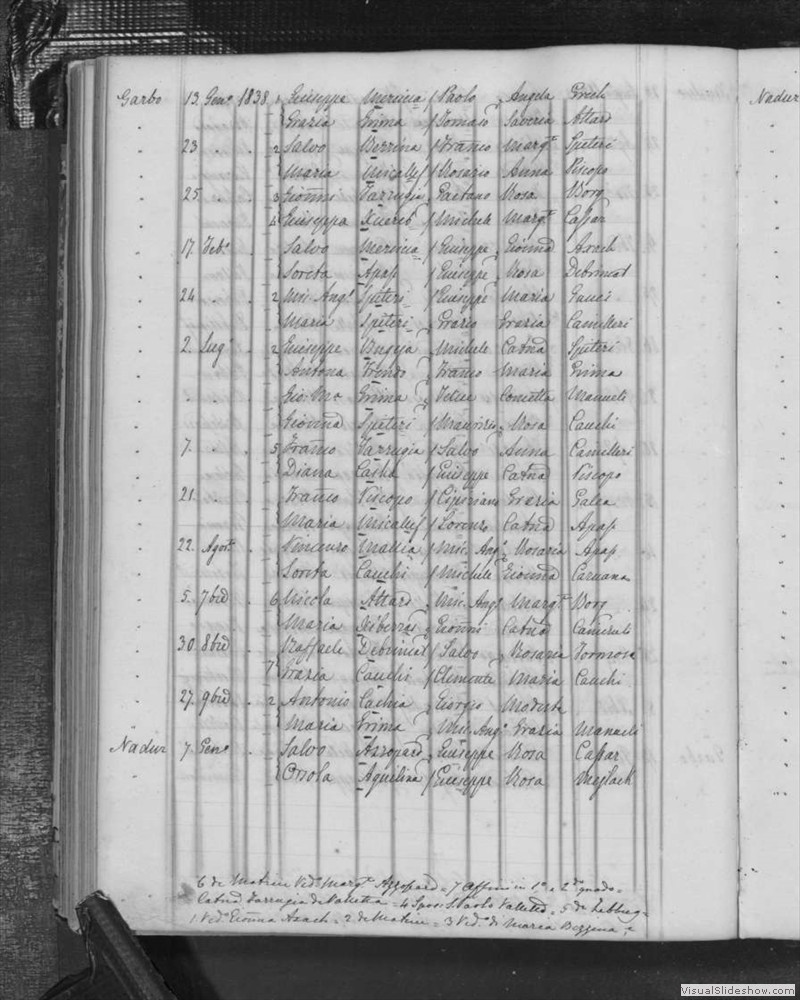 Garbo 13. Genº 1838 1 Giuseppe Mercieca / Paolo Angela Grech
Grazia Grima / Tomaso Saveria Attard
23 . . 2 Salvo / Franco Margta Spiteri
Maria Micallef / Rosario Anna Piscopo
25 . . 3 Gioñni Farrugia Gaetano Rosa Borg
4 Giuseppa Xuereb / Michele Margta Cassar
17. Febº . Salvo Mercieca / Giuseppe Gionna Azach
Loreta Apap / Giuseppe Rosa Debrincat
24 . . 2 Mic. Angº Spiteri / Giuseppe Maria Gauci
Maria Spiteri Grazio Grazia Camilleri
2. Lugº . 2 Giuseppe Bugeja Michele Catna Spiteri
Antona Franco Maria Grima
Gio: Mª Grima Felice Concetta Manueli
Gionna Spiteri / Maurizio Rosa Cauchi
7. . . 5 Franco Farrugia / Salvo Anna Camilleri
Diana Casha / Giuseppe Catna Piscopo
21 . . Franco Piscopo / Cipriano Grazia Galea
Maria Micallef / Lorenzo Catna Apap
22. Agosto . Vincenzo Mallia / Mic. Angº Rosaria Apap
Loreta Cauchi / Michele Gionna Caruana
5. 7bre . 6 Nicola Attard Mic. Angº Margta Borg
Maria Xiberras Gioñni Catna
30 8bre . Raffaele Debrincat / Salvo Rosaria Formosa
7 Grazia Cauchi / Clemente Maria Cauchi
27. 9bre . 2 Antonio Cachia Giorgio Modesta
Maria Grima Mic. Angº Grazia Manueli
Nadur
Nadur 7 Genº . Salvo Azzopardi Giuseppe Rosa Cassar
Orsola Aquilina / Giuseppe Rosa Mejlack
6 di Matrice Vedº Margta Azzopardi = 7 Affini in 1º e 2do grado =
Catna Farrugia da Valletta = 4 Spos: S Paolo Valletta = 5 da Zebbug =
1 Vedº Gionna Azach = 2 di Matrice = 3 Vedº di Maria Bezzina =
VisualSlideshow.com